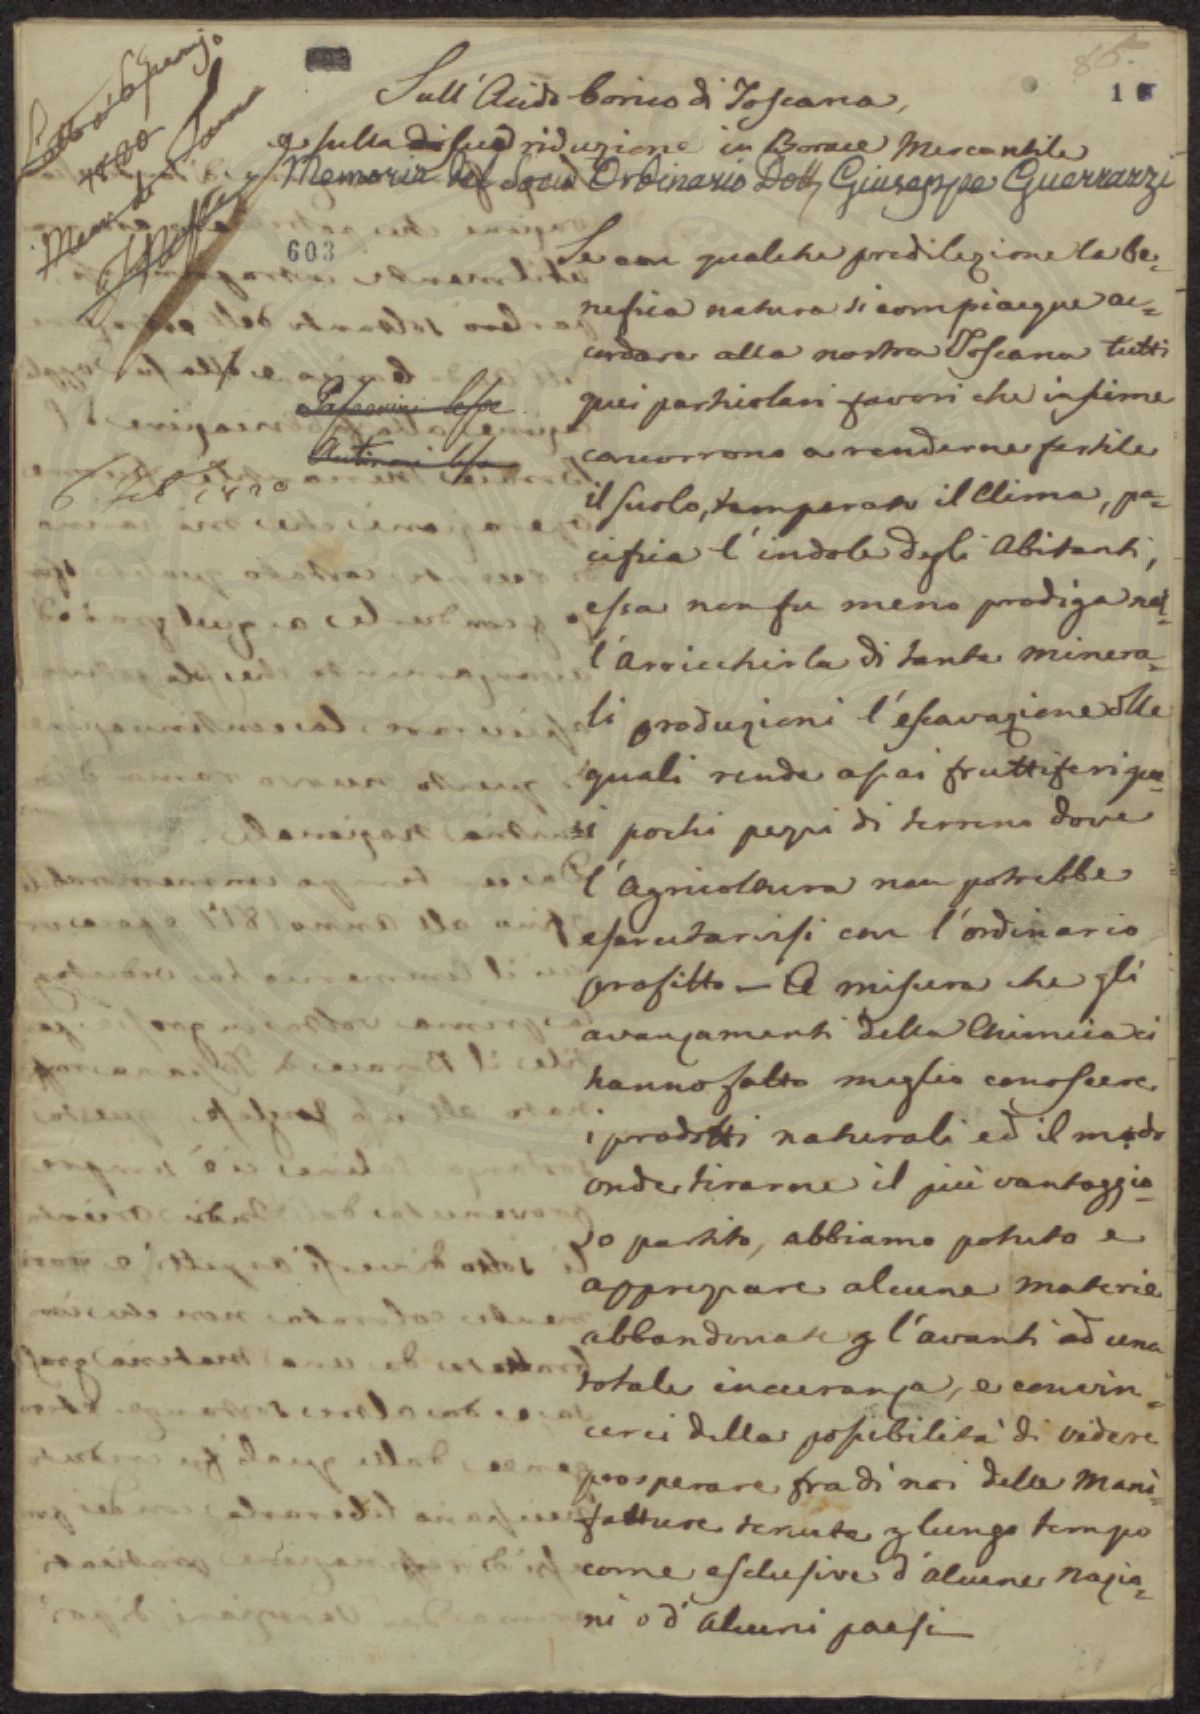 86.
1
Sull' Acido borico di Toscana,
e sulla di sua riduzione in Borace Mercantile
Memoria del Socio Ordinario Dott. Giuseppe Guerrazzi
1820
603
6. Feb 1820
Se con qualche predilezione la be=
nefica natura si compiacque ac=
cordare alla nostra Toscana tutti
quei particolari favori che insieme
concorrono a renderne fertile
il suolo, temperato il Clima, pa=
cifica l'indole degli Abitanti,
essa non fu meno prodiga nel=
l'arricchirla di tante minera=
li produzioni l'escavazione delle
quali rende assai fruttiferi que=
i pochi pezzi di terreno dove
l'Agricoltura non potrebbe
esercitarvisi con l'ordinario
profitto — A misura che gli
avanzamenti della Chimica ci
hanno fatto meglio conoscere
i prodotti naturali ed il modo
onde tirarne il più vantaggio=
so partito, abbiamo potuto e
apprezzare alcune materie
abbandonate p l'avanti ad una
totale incuranza, e convin=
cerci della possibilità di vedere
prosperare fra di noi delle Mani=
fatture tenute p lungo tempo
come esclusive d'alcune Nazio=
ni o d'alcuni paesi —